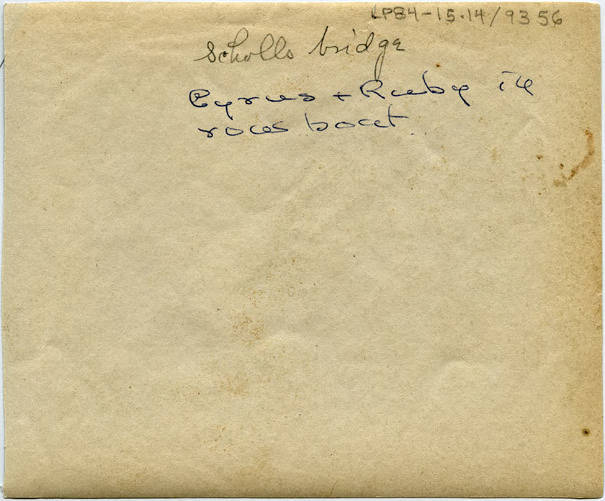 LP84-15.14/9356
Scholls bridge
Cyrus + Ruby in
row boat